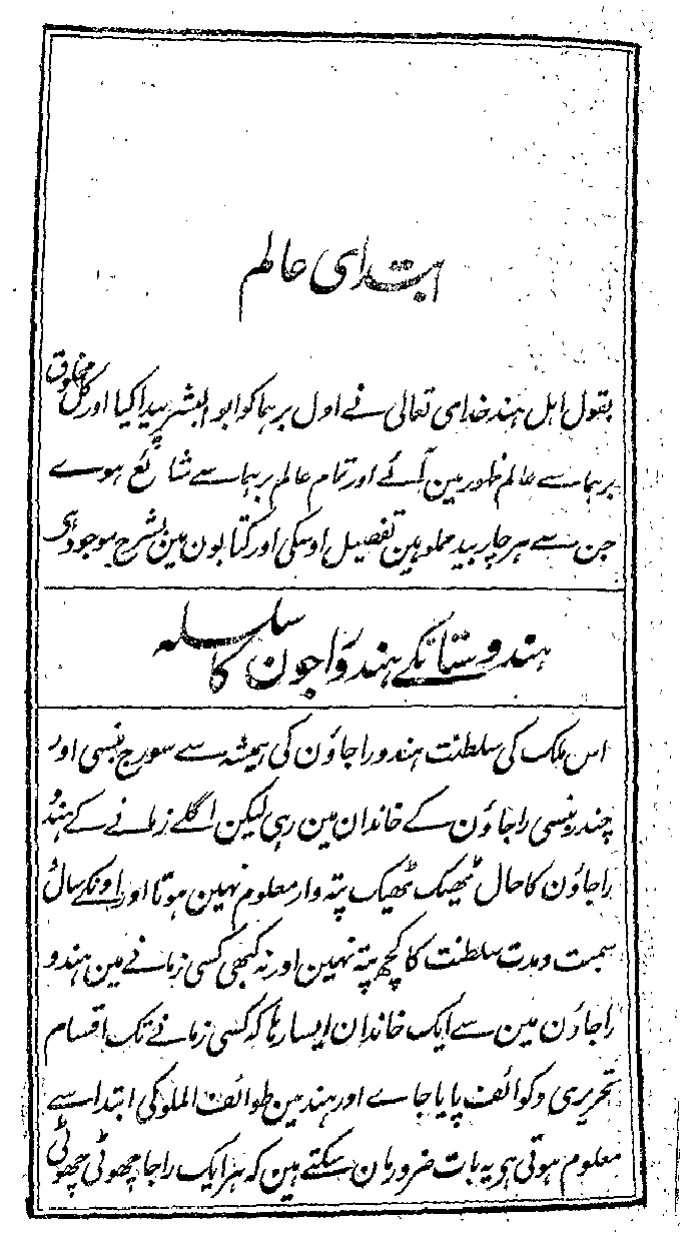 ابتدای عالم
بقول اہل ہند خدای تعالی نے اول برہما کو ابو البشر پیدا کیا اور کل مخلوق
برہما سے عالم ظہور مین آئے اور تمام عالم برہما سے شائع ہوے
جن سے ہر چار بید مملو ہین تفصیل اوسکی اور کتابون مین بشرح موجود ہی
ہندوستانکے ہندو راجون کا سلسلہ
اس ملک کی سلطنت ہندو راجاؤن کی ہمیشہ سے سورج بنسی اور
چندر بنسی راجاؤن کے خاندان مین رہی لیکن اگلے زمانے کے ہندو
راجاؤن کا حال ٹھیک ٹھیک پتہ وار معلوم نہین ہوتا اور اونکے سال
سمت و مدت سلطنت کا کچھ پتہ نہین اور نہ کبھی کسی زمانے مین ہندو
راجاؤن مین سے ایک خاندان ایسا رہا کہ کسی زمانے تک اقسام
تحریری و کوائف پایا جاے اور ہند مین طوائف الملوکی ابتدا سے
معلوم ہوتی ہی یہ بات ضرور مان سکتے ہین کہ ہر ایک راجا چھوٹی چھوٹی